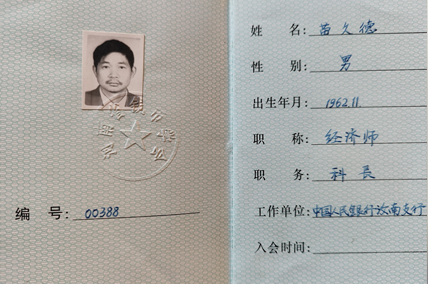 编 号: 00388
姓 名: 苗久德
性 别: 男
出生年月: 1962.11
职 称: 经济师
职 务: 科长
工作单位: 中国人民银行汝南支行
入会时间: